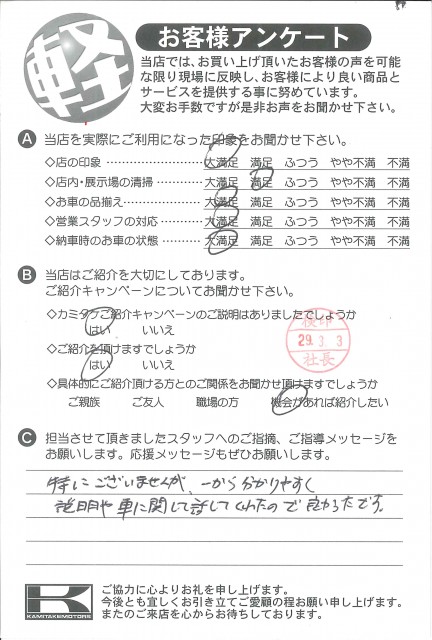 軽
お客様アンケート
当店では、お買い上げ頂いたお客様の声を可能
な限り現場に反映し、お客様により良い商品と
サービスを提供する事に努めています。
大変お手数ですが是非お声をお聞かせ下さい。
A 当店を実際にご利用になった印象をお聞かせ下さい。
◇店の印象 大満足 満足 ふつう やや不満 不満
◇店内・展示場の清掃 大満足 満足 ふつう やや不満 不満
◇お車の品揃え 大満足 満足 ふつう やや不満 不満
◇営業スタッフの対応 大満足 満足 ふつう やや不満 不満
◇納車時のお車の状態 大満足 満足 ふつう やや不満 不満
B 当店はご紹介を大切にしております。
ご紹介キャンペーンについてお聞かせ下さい。
◇カミタケご紹介キャンペーンのご説明はありましたでしょうか
はい いいえ
検印
29.3.3
社長
◇ご紹介を頂けますでしょうか
はい いいえ
◇具体的にご紹介頂ける方とのご関係をお聞かせ頂けますでしょうか
ご親族 ご友人 職場の方 機会があれば紹介したい
C 担当させて頂きましたスタッフへのご指摘、ご指導メッセージを
お願いします。応援メッセージもぜひお願いします。
特にございませんが、一から分かりやすく
説明や車に関して話してくれたので良かったです。
K
KAMITAKEMOTORS
ご協力に心よりお礼を申し上げます。
今後とも宜しくお引き立てご愛顧の程お願い申し上げます。
またのご来店を心からお待ちしております。